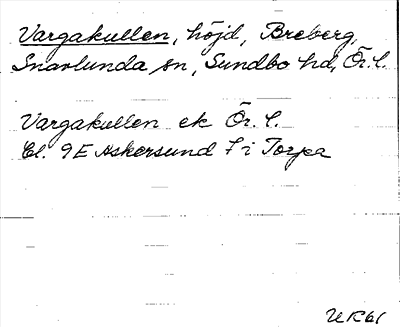 Vargakullen, höjd, Breberg,
Snavlunda sn, Sundbo hd, Ör. l.
Vargakullen ek Ör. l.
Bl. 9E Askersund 7 i Torpa
UR61